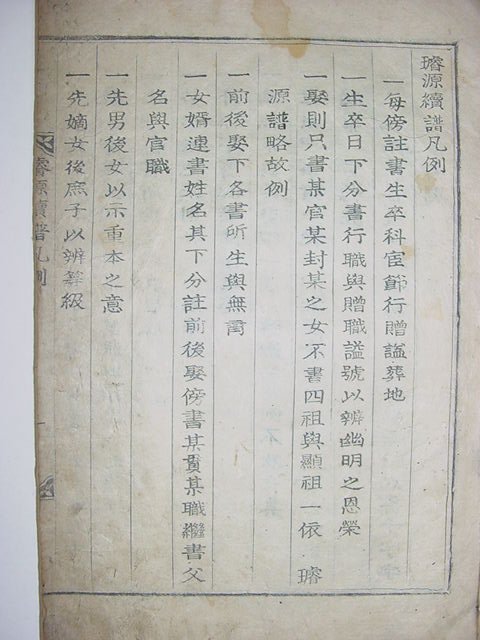 璿源續譜凡例
一每傍註書生卒科宦節行贈謚葬地
一生卒日下分書行職與贈職謚號以辨幽明之恩榮
一娶則只書某官某封某之女不書四祖與顯祖一依 璿
源譜略故例
一前後娶下各書所生與無育
一女婿連書姓名其下分註前後娶傍書某貫某職繼書父
名與官職
一先男後女以示重本之意
一先嫡女後庶子以辨等級
璿源續譜凡例
一